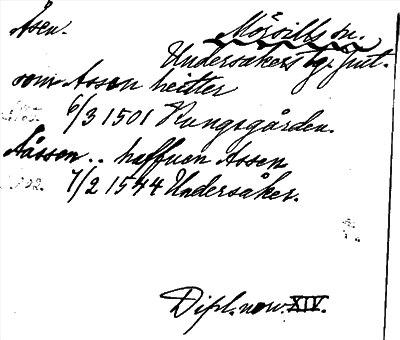 Åsen. Mörsills sn.
Undersåkers tgs Jmt.
som Assen heitter
6/3 1501 Kungsgården.
Aassen .. haffuen Assen
7/2 1544 Undersåker.
Dipl. now. XIV.